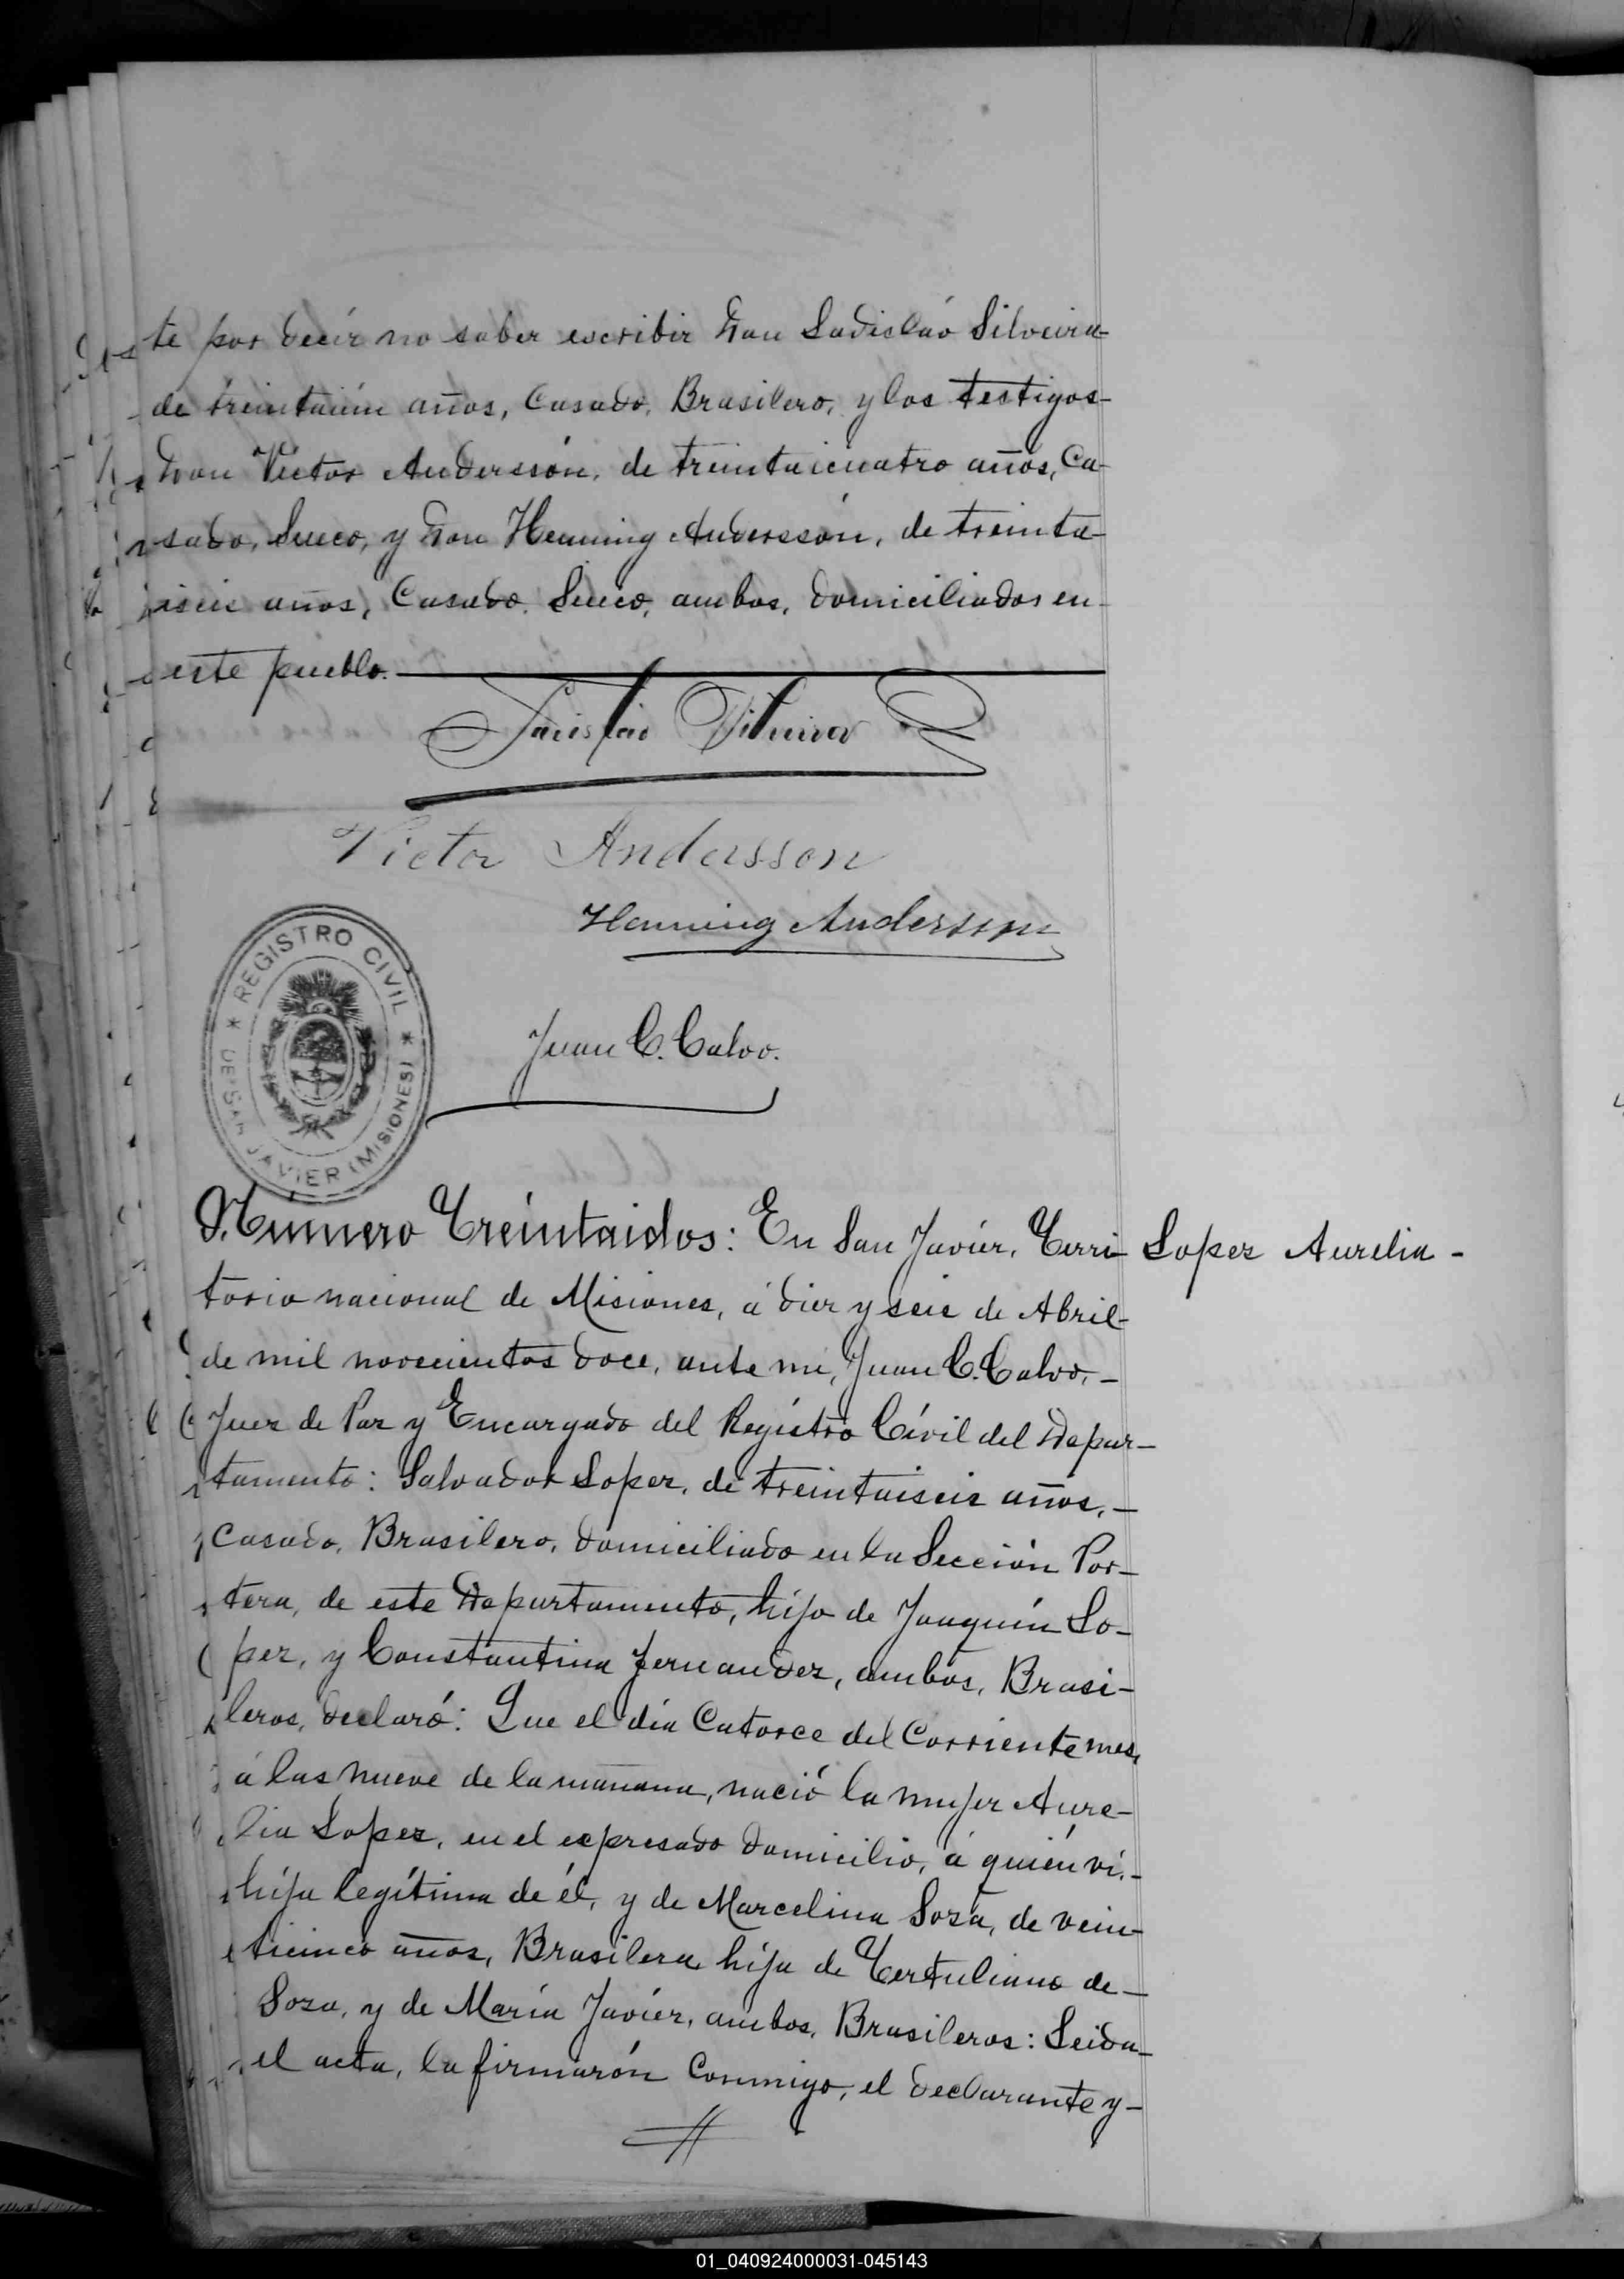 te por decir no saber escribir Don Ladisláo Silveira
de treintaiún años, Casado, Brasilero, y los testigos
Don Víctor Anderssón, de treintaicuatro años, Ca-
sado, Sueco, y Don Henning Anderssón, de treinta-
iseis años, Casado, Sueco, ambos, domiciliados en
este pueblo.
Victor Andersson
Henning Andersson
REGISTRO CIVIL
DE SAN JAVIER (MISIONES)
Juan C. Calvo.
Número Treintaidos: En San Javiér, Terri-
Lopez Aurelia -
torio nacional de Misiones, á diez y seis de Abril-
de mil novecientos doce, ante mi, Juan C. Calvo, -
Juez de Paz y Encargado del Registro Cívil del Depar-
tamento: Salvador Lopez, de treintaiseis años, -
Casado, Brasilero, domiciliado en la Sección Por-
tera, de este Departamento, hijo de Joaquín Lo-
pez, y Constantina Fernandez, ambos, Brasi-
leros, declaró: Que el día Catorce del Corriente mes,
á las nueve de la mañana, nació la mujer Aure-
lia Lopez, en el expresado domicilio, á quién ví. -
hija legítima de él, y de Marcelina Soza, de vein-
ticinco años, Brasilera, hija de Tertuliano de -
Soza, y de María Javiér, ambos, Brasileros: Leida-
el acta, la firmarón Conmigo, el declarante y -
01_040924000031-045143